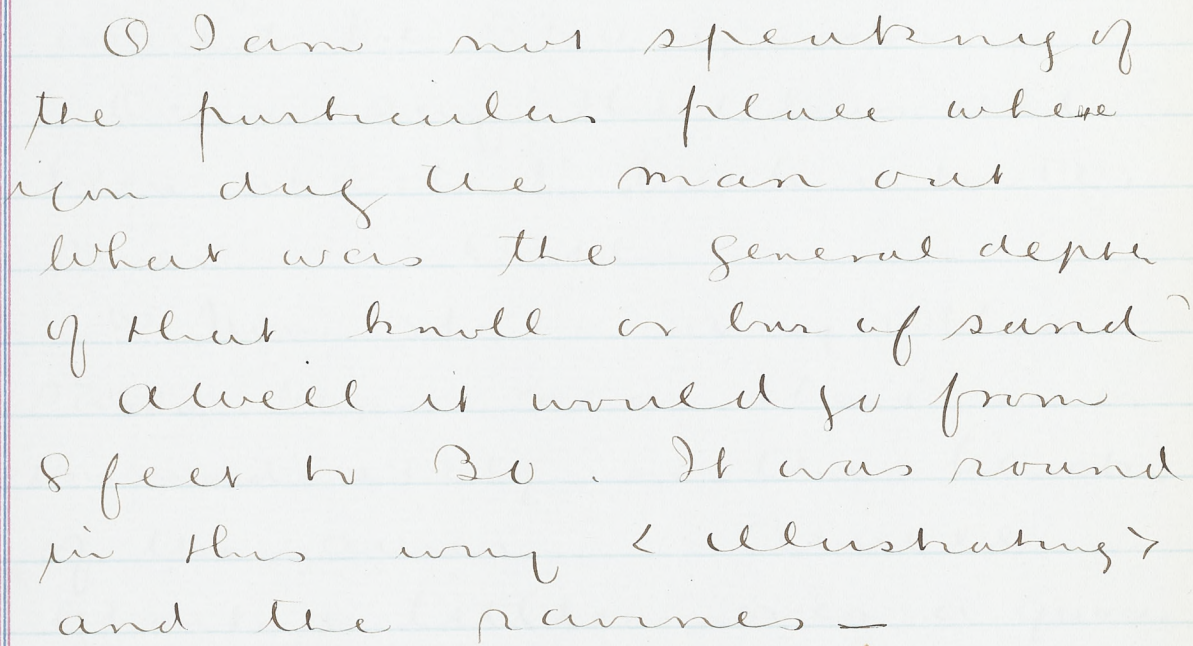 Q I am not speaking of
the particular place where
you dug the man out
What was the general depth
of that knoll or bar of sand
A Well it would go from
8 feet to 30. It was round
in this way < illustrating >
and the ravines —